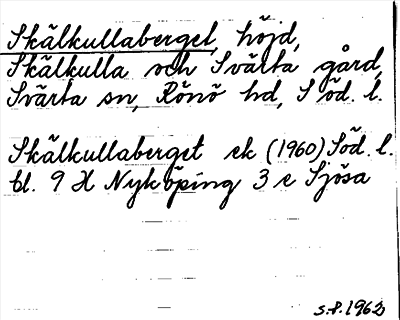 Skälkullaberget, höjd,
Skälkulla och Svärta gård,
Svärta sn, Rönö hd, Söd. l.
Skälkullaberget ek (1960) Söd. l.
bl. 9 H Nyköping 3 e Sjösa
s.f. 1962